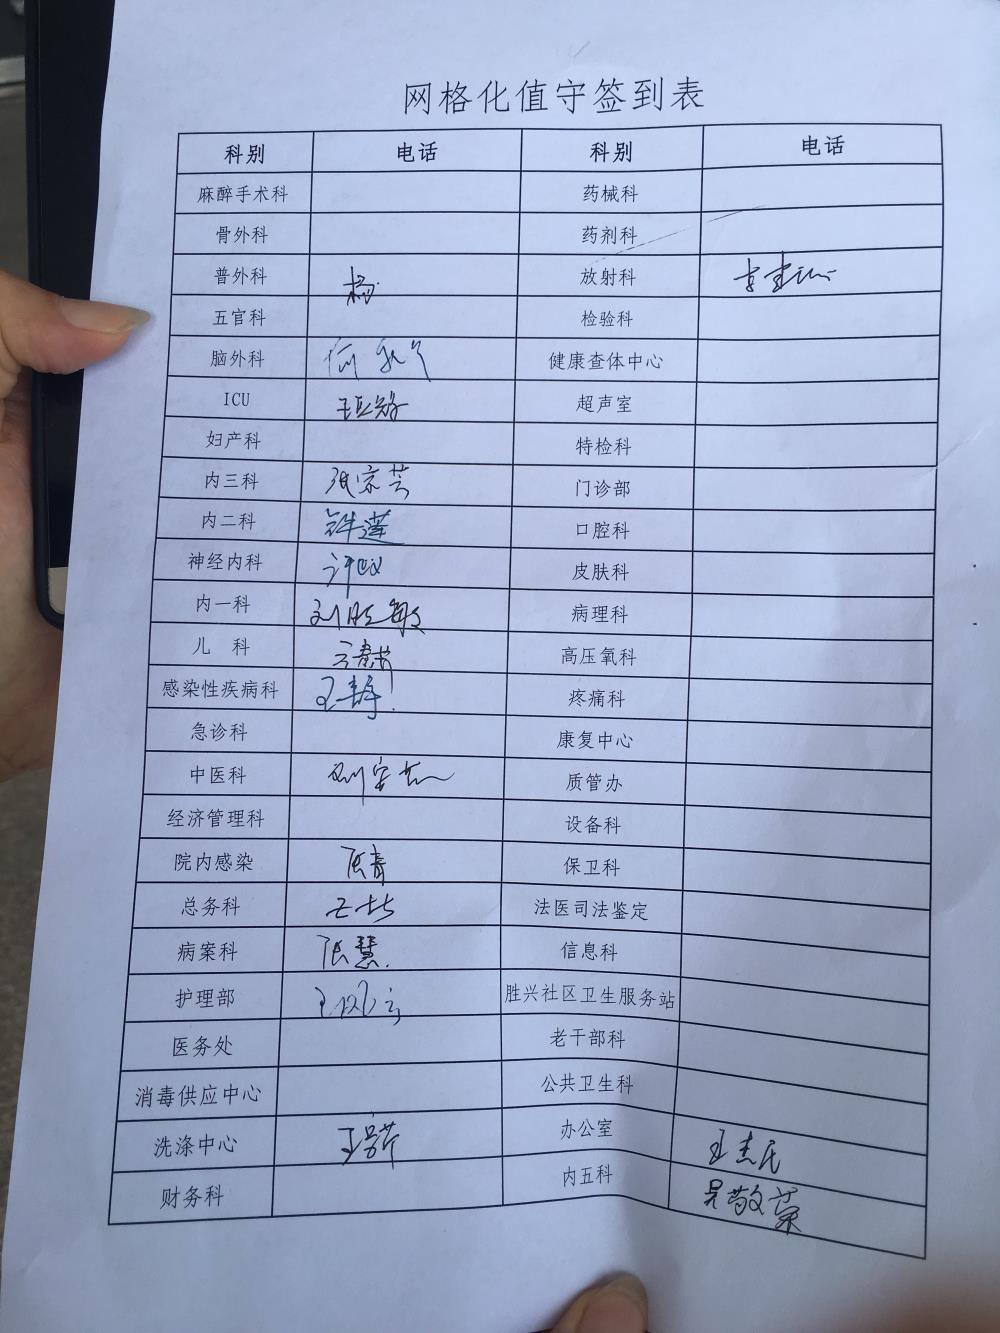 网格化值守签到表
科别 电话 科别 电话
麻醉手术科 药械科
骨外科 药剂科
普外科 杨 放射科
五官科 检验科
脑外科 健康查体中心
ICU 超声室
妇产科 特检科
内三科 张宗芸 门诊部
内二科 口腔科
神经内科 皮肤科
内一科 刘胜敏 病理科
儿 科 高压氧科
感染性疾病科 王静 疼痛科
急诊科 康复中心
中医科 质管办
经济管理科 设备科
院内感染 张青 保卫科
总务科 法医司法鉴定
病案科 张慧 信息科
护理部 胜兴社区卫生服务站
医务处 老干部科
消毒供应中心 公共卫生科
洗涤中心 办公室 王杰民
财务科 内五科 吴敬荣